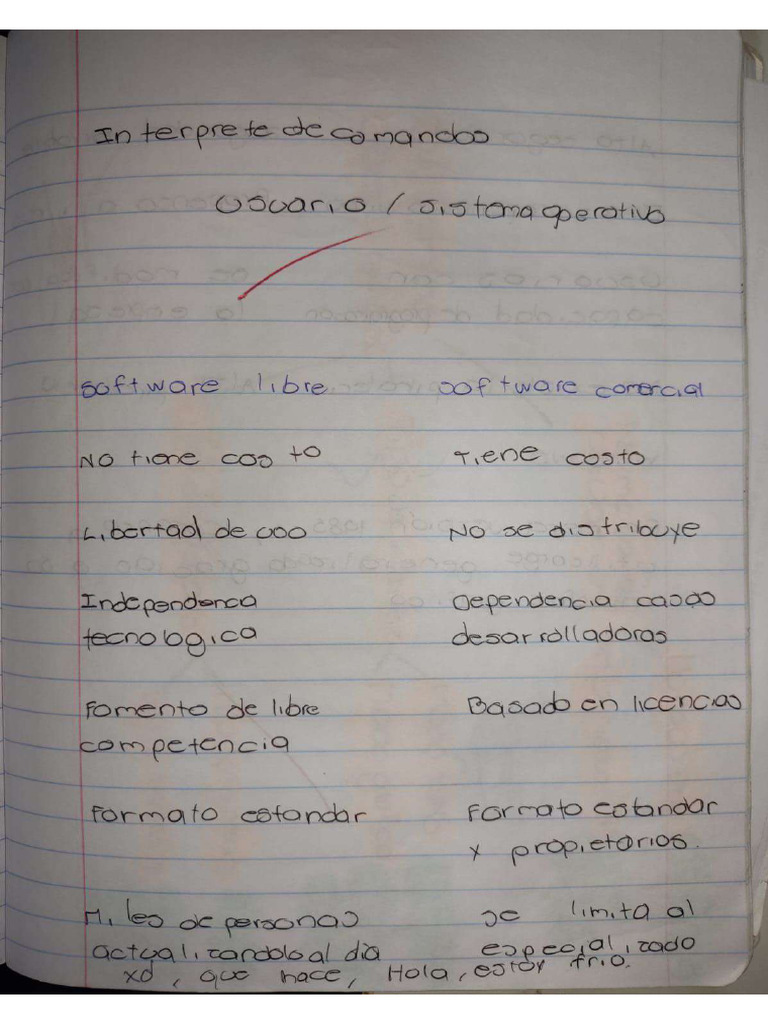 Interprete de comandos
Usuario / sistema operativo
software libre software comercial
No tiene costo Tiene costo
Libertad de uso No se distribuye
Independenca Dependencia casas
tecnologica desarrolladoras
Fomento de libre Basado en licencias
competencia
Formato estandar Formato estandar
x propietarios.
Miles de personas se limita al
actualizandolo al dia especializado
xd, que hace, Hola, estoy frio.